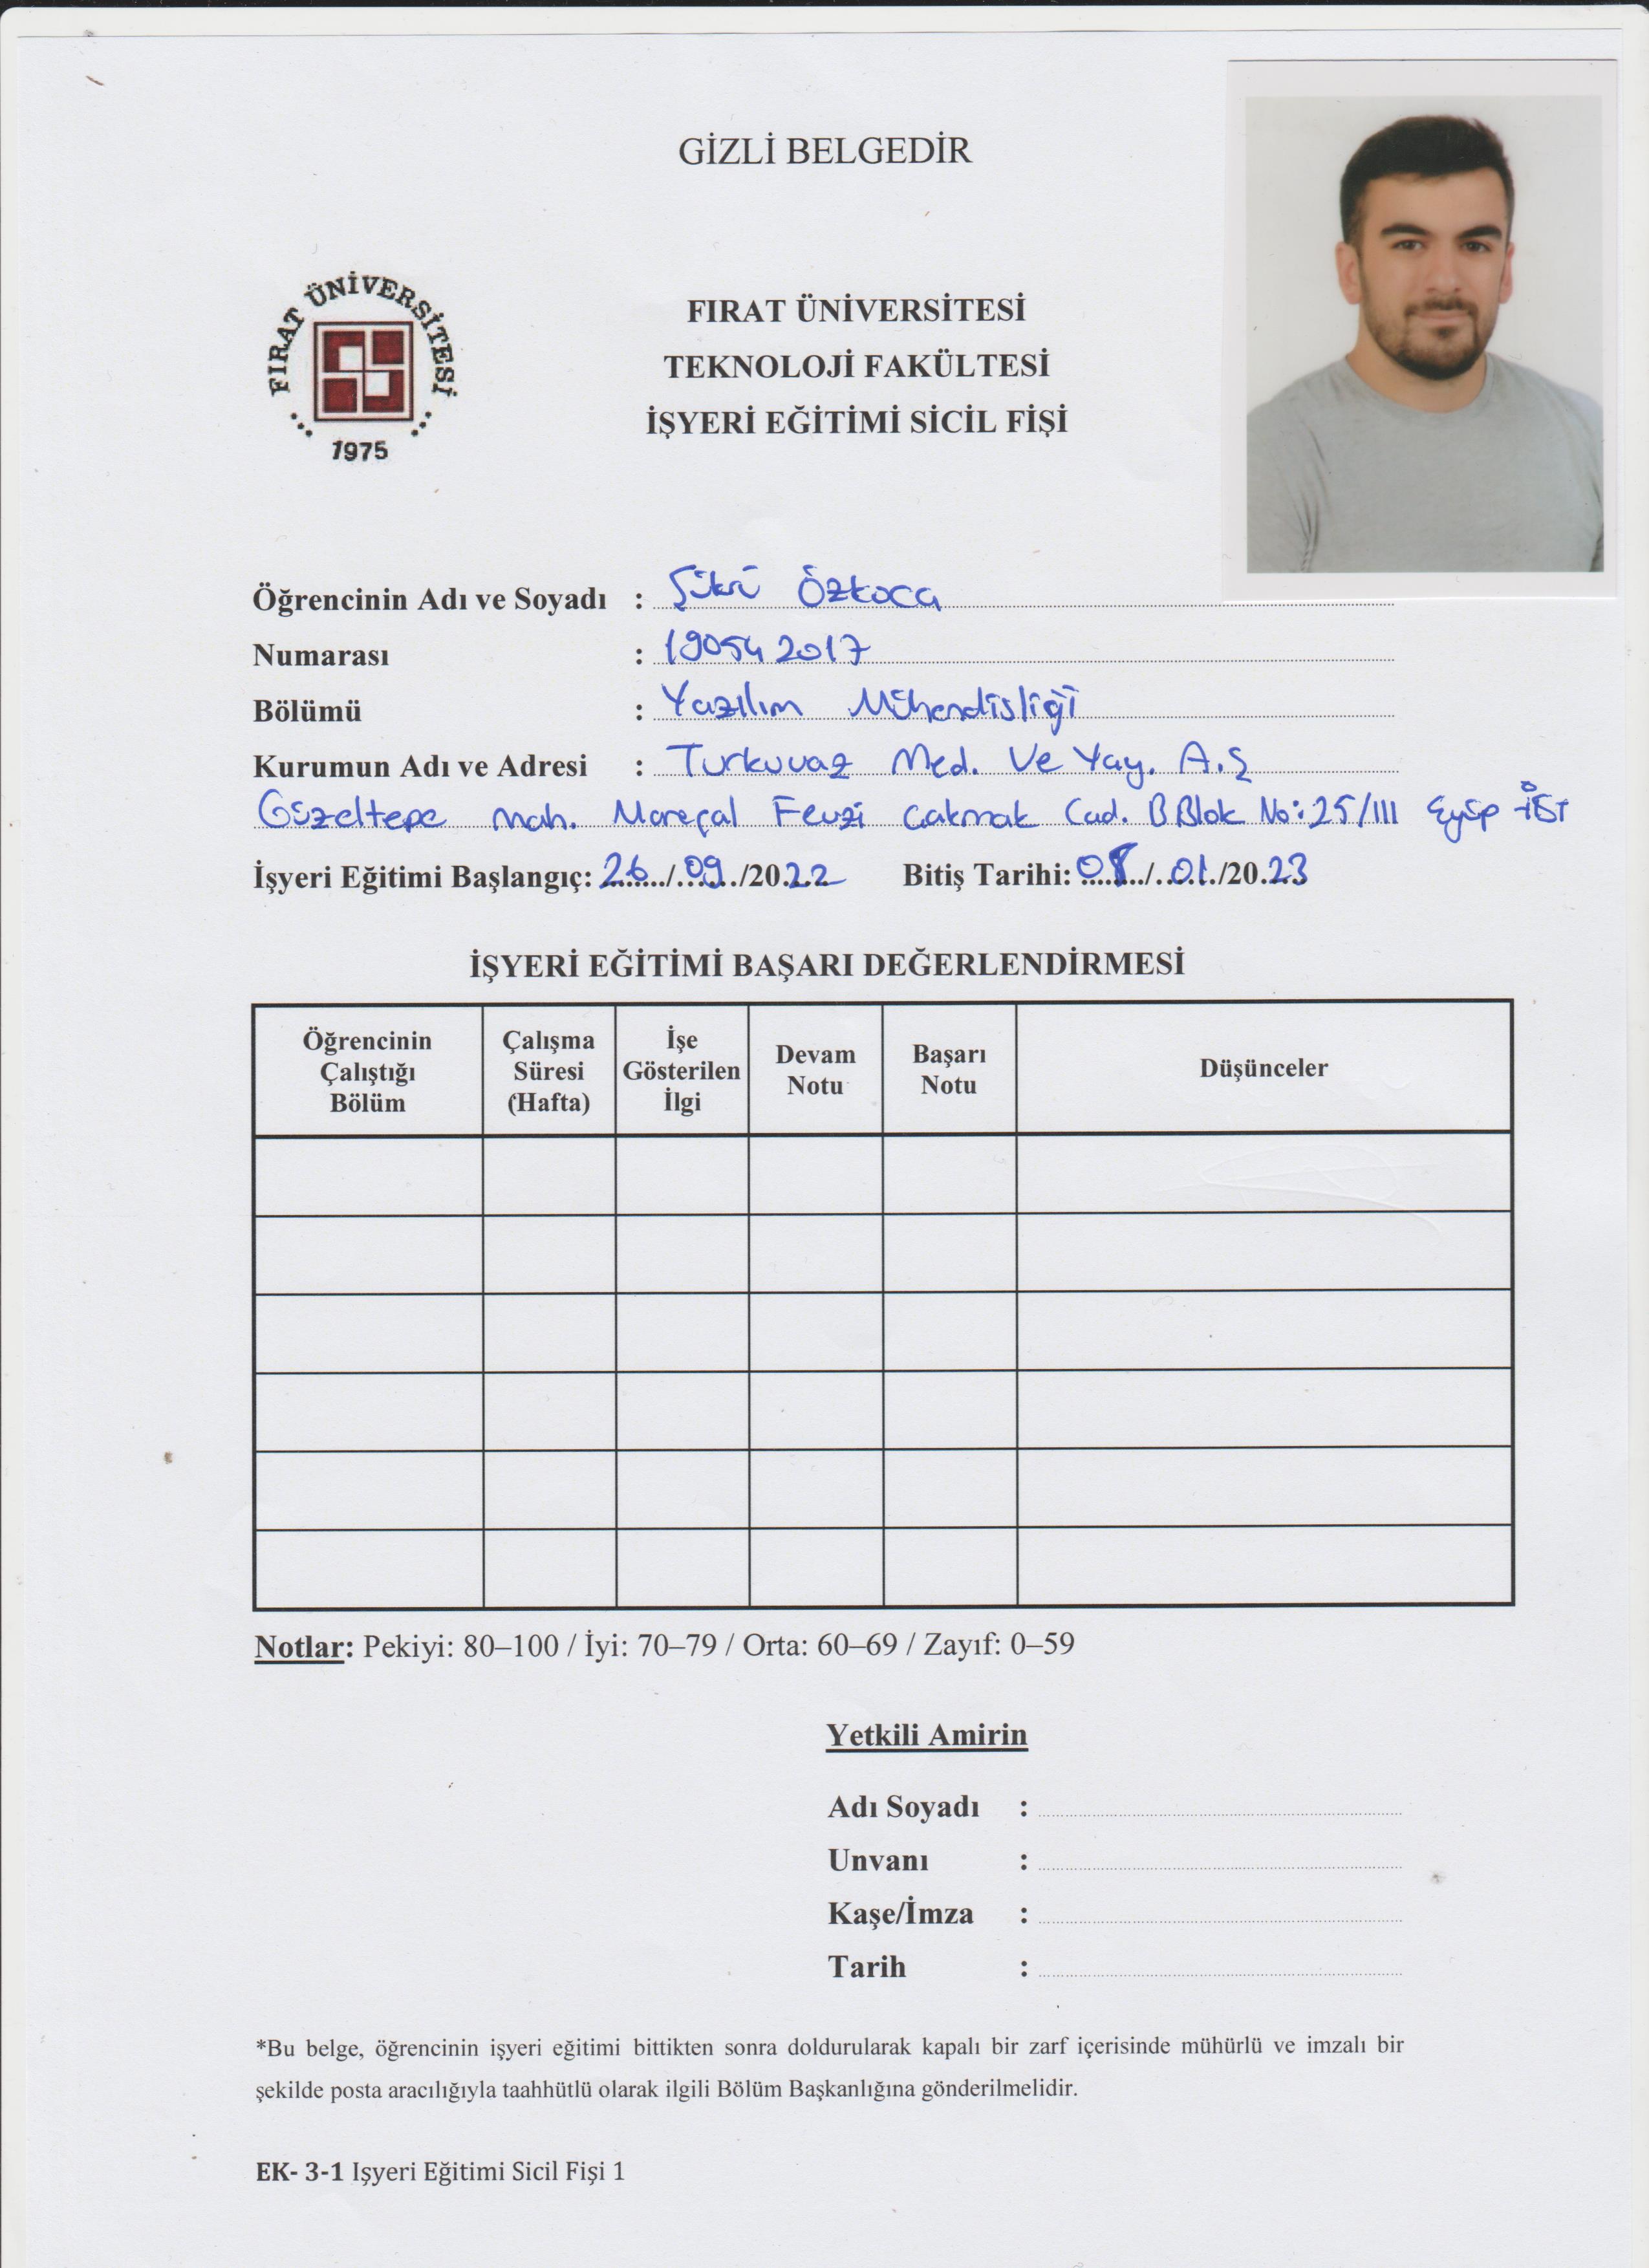 GİZLİ BELGEDİR
FIRAT ÜNİVERSİTESİ
1975
FIRAT ÜNİVERSİTESİ
TEKNOLOJİ FAKÜLTESİ
İŞYERİ EĞİTİMİ SİCİL FİŞİ
Öğrencinin Adı ve Soyadı : Şükrü Özkoca
Numarası : 190542017
Bölümü : Yazılım Mühendisliği
Kurumun Adı ve Adresi : Turkuvaz Med. Ve Yay. A.Ş
Güzeltepe mah. Mareşal Fevzi Çakmak Cad. B Blok No: 25/III Eyüp İST
İşyeri Eğitimi Başlangıç: 26/09/2022 Bitiş Tarihi: 08/01/2023
İŞYERİ EĞİTİMİ BAŞARI DEĞERLENDİRMESİ
Öğrencinin Çalıştığı Bölüm Çalışma Süresi (Hafta) İşe Gösterilen İlgi Devam Notu Başarı Notu Düşünceler
Notlar: Pekiyi: 80–100 / İyi: 70–79 / Orta: 60–69 / Zayıf: 0–59
Yetkili Amirin
Adı Soyadı :
Unvanı :
Kaşe/İmza :
Tarih :
*Bu belge, öğrencinin işyeri eğitimi bittikten sonra doldurularak kapalı bir zarf içerisinde mühürlü ve imzalı bir
şekilde posta aracılığıyla taahhütlü olarak ilgili Bölüm Başkanlığına gönderilmelidir.
EK- 3-1 Işyeri Eğitimi Sicil Fişi 1